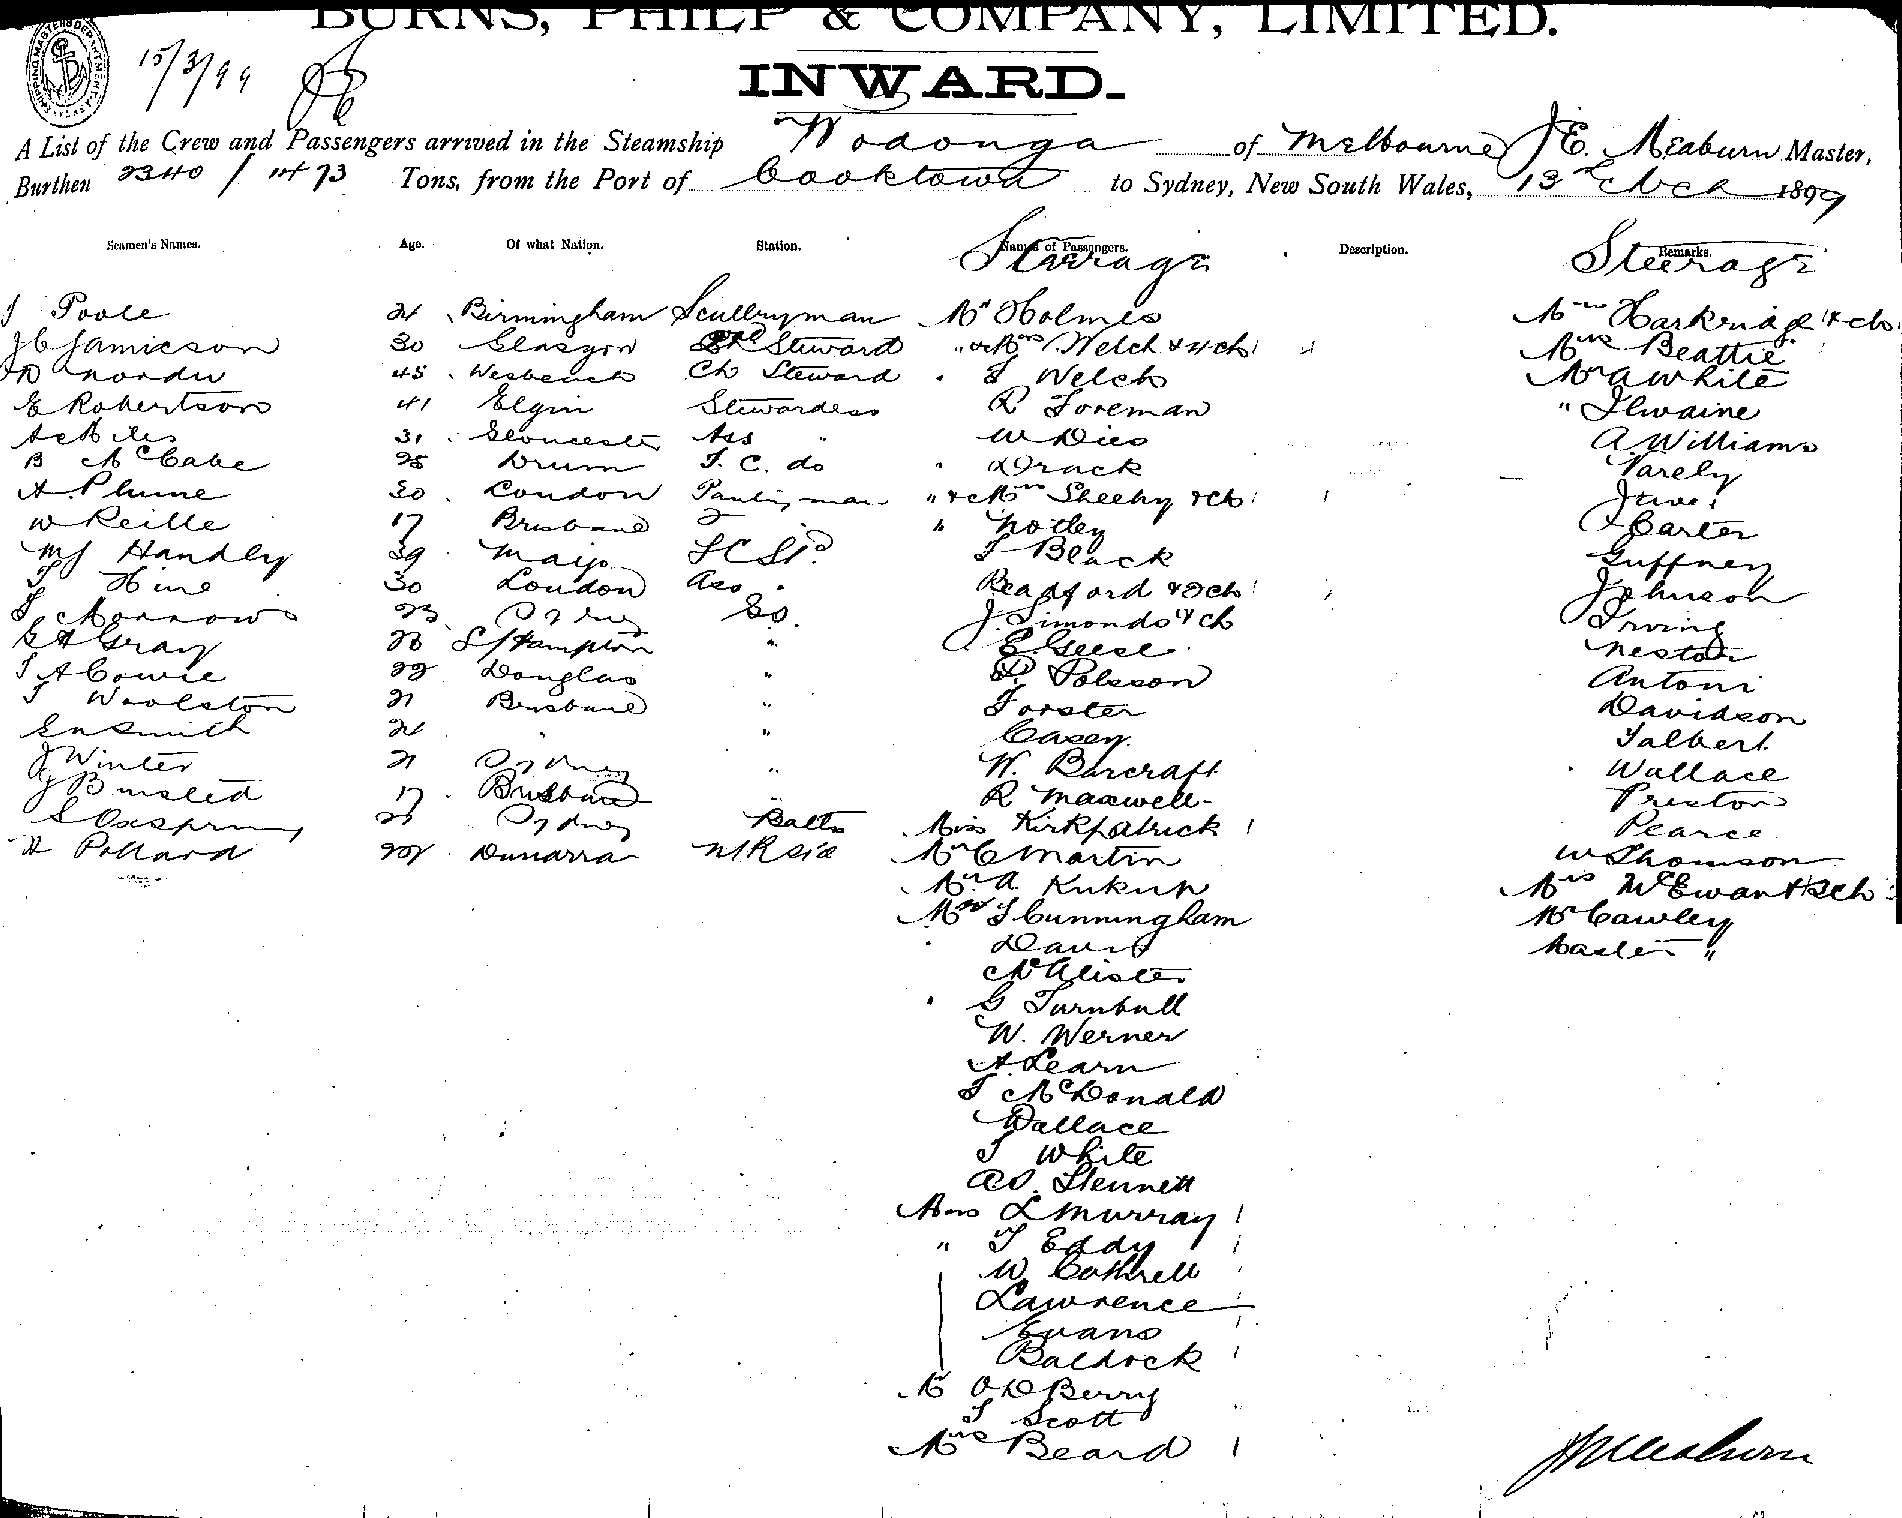 BURNS, PHILP & COMPANY, LIMITED.
15/3/99
INWARD.
A List of the Crew and Passengers arrived in the Steamship Wodonga of Melbourne J E. Meaburn Master,
Burthen 2340 / 1473 Tons, from the Port of Cooktown to Sydney, New South Wales, 13th Mch 1899
Seamen's Names. Age. Of what Nation. Station. Names of Passengers. Description. Remarks.
Steerage Steerage
J Poole 21 Birmingham Scullryman Mr Holmes Mrs Harkridge & ch
J C Jamieson 30 Glasgow Steward " & Mrs Welch & 4 ch Mrs Beattie
45 Ch Steward J Welch Mr A White
E Robertson 41 Elgin Stewardess R Foreman " Ilwaine
31 Gloucester Ass " W Dies A Williams
B McCabe 25 Drum F. C. do Drack Varely
A. Plume 30 London Pantryman " & Mrs Sheehy & ch
W Reille 17 Brisbane " " Notley Carter
M J Handley 39 Mayo F C Std J Black Guffney
J Hine 30 London Ass Readford & 2 ch Johnson
J Morrow 23 Sydney Do. J. Simonds & ch Irving
G A Gray 23 S/Hampton " E Geese Nestor
J A Cowie 22 Douglas " P. Polsson Antoni
J Woolston 21 Brisbane " Forster Davidson
Smith 21 " " Casey Talbert
J Winter 21 Sydney " W. Barcraft Wallace
J Binsted 17 Brisbane " R Maxwell Preston
Sydney Miss Kirkpatrick Pearce
H Pollard Mr C Martin W Thomson
Mr A. Kukup Mrs McEwan & 2 ch
Mr J Cunningham Mr Cawley
Davis Master "
McAlister
G Turnbull
W. Werner
A. Learn
J McDonald
Wallace
J White
A D. Stennett
Mrs L Murray
" J Eddy
W Cottrell
Lawrence
Evans
Baldock
Mr O D Berry
J Scott
Mrs Beard
J Meaburn